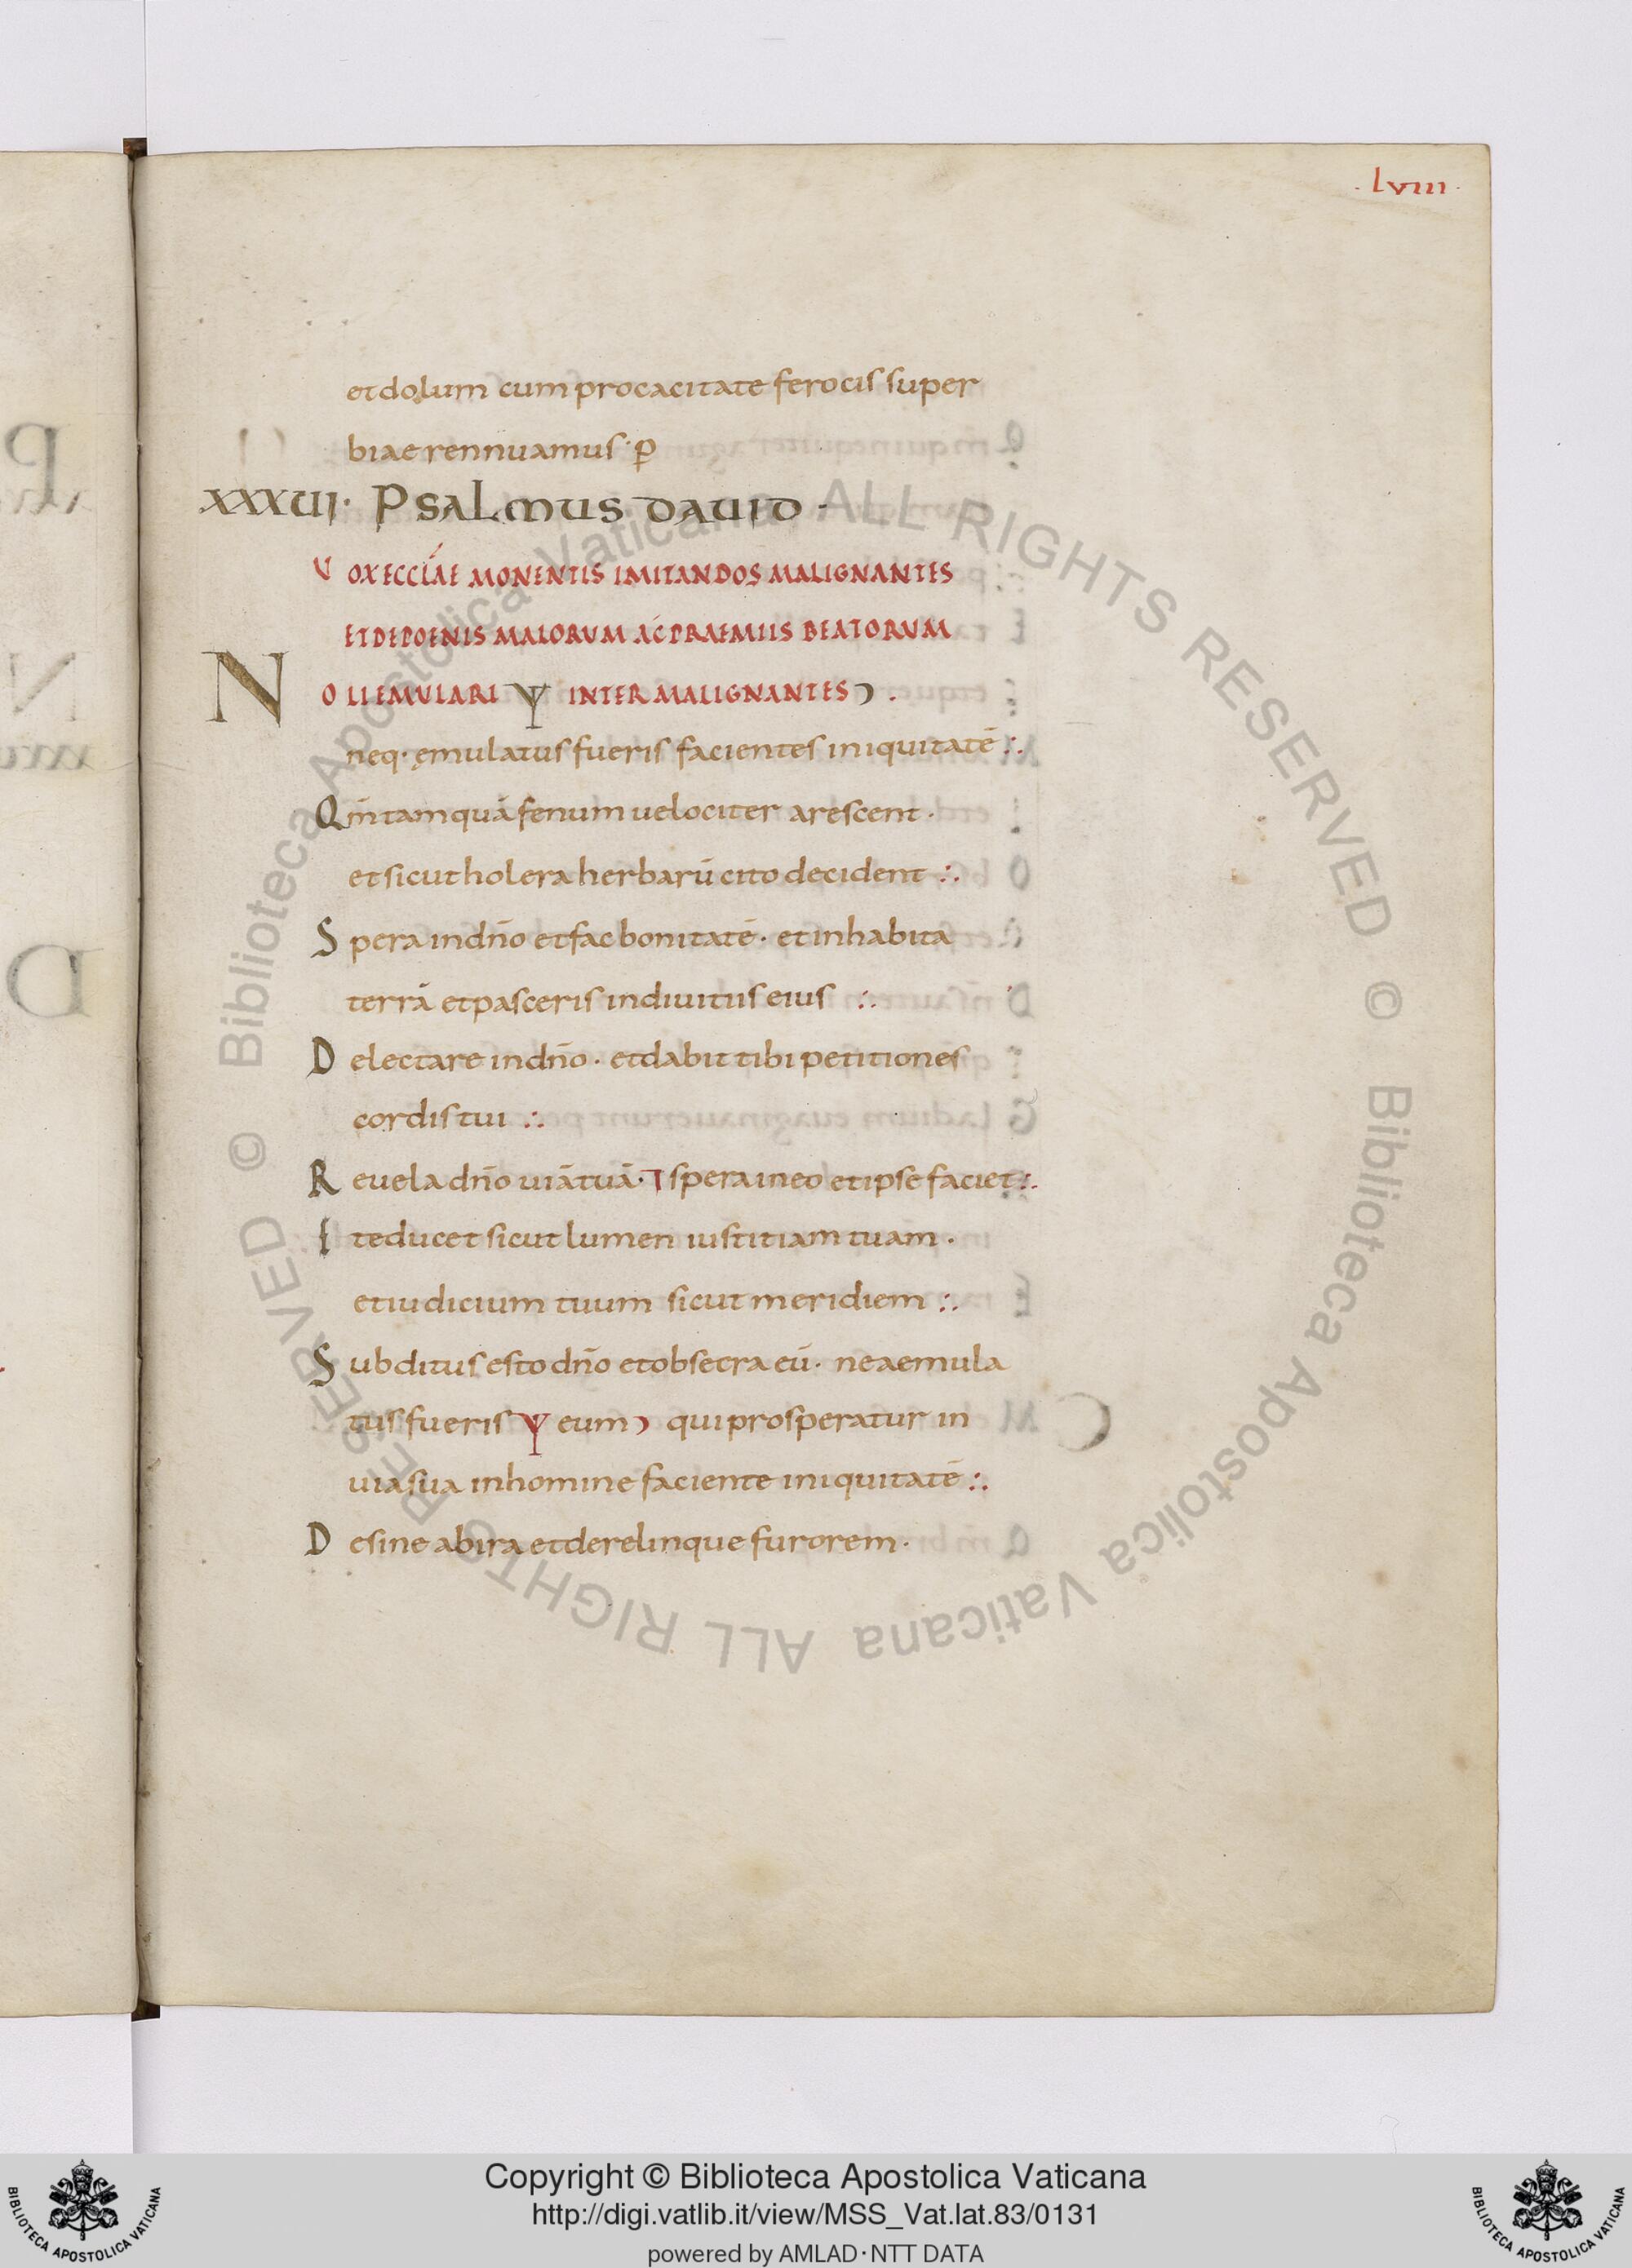 · lviii ·
et dolum cum procacitate ferocis super
biae rennuamus · p̄
XXXVI · PSALMUS DAVID ·
VOX ECCĹAE MONENTIS IMITANDOS MALIGNANTES
ET DE POENIS MALORVM AC PRAEMIIS BEATORVM
NOLI EMVLARI INTER MALIGNANTES ·
neq· ęmulatus fueris facientes iniquitatē :·
Qm̄ tamquā fenum uelociter arescent ·
et sicut holera herbarū cito decident :·
Spera in dn̄o et fac bonitatē · et inhabita
terrā et pasceris in diuitiis eius :·
Delectare in dn̄o · et dabit tibi petitiones
cordis tui :·
Reuela dn̄o uiā tuā · ⁊ spera in eo et ipse faciet :·
Et educet sicut lumen iustitiam tuam ·
et iudicium tuum sicut meridiem :·
Subditus esto dn̄o et obsecra eū · ne aemula
tus fueris eum qui prosperatur in
uia sua in homine faciente iniquitatē :·
Desine ab ira et derelinque furorem ·
© Biblioteca Apostolica Vaticana ALL RIGHTS RESERVED © Biblioteca Apostolica Vaticana ALL RIGHTS RESERVED
Copyright © Biblioteca Apostolica Vaticana
http://digi.vatlib.it/view/MSS_Vat.lat.83/0131
powered by AMLAD·NTT DATA
BIBLIOTECA APOSTOLICA VATICANA
BIBLIOTECA APOSTOLICA VATICANA